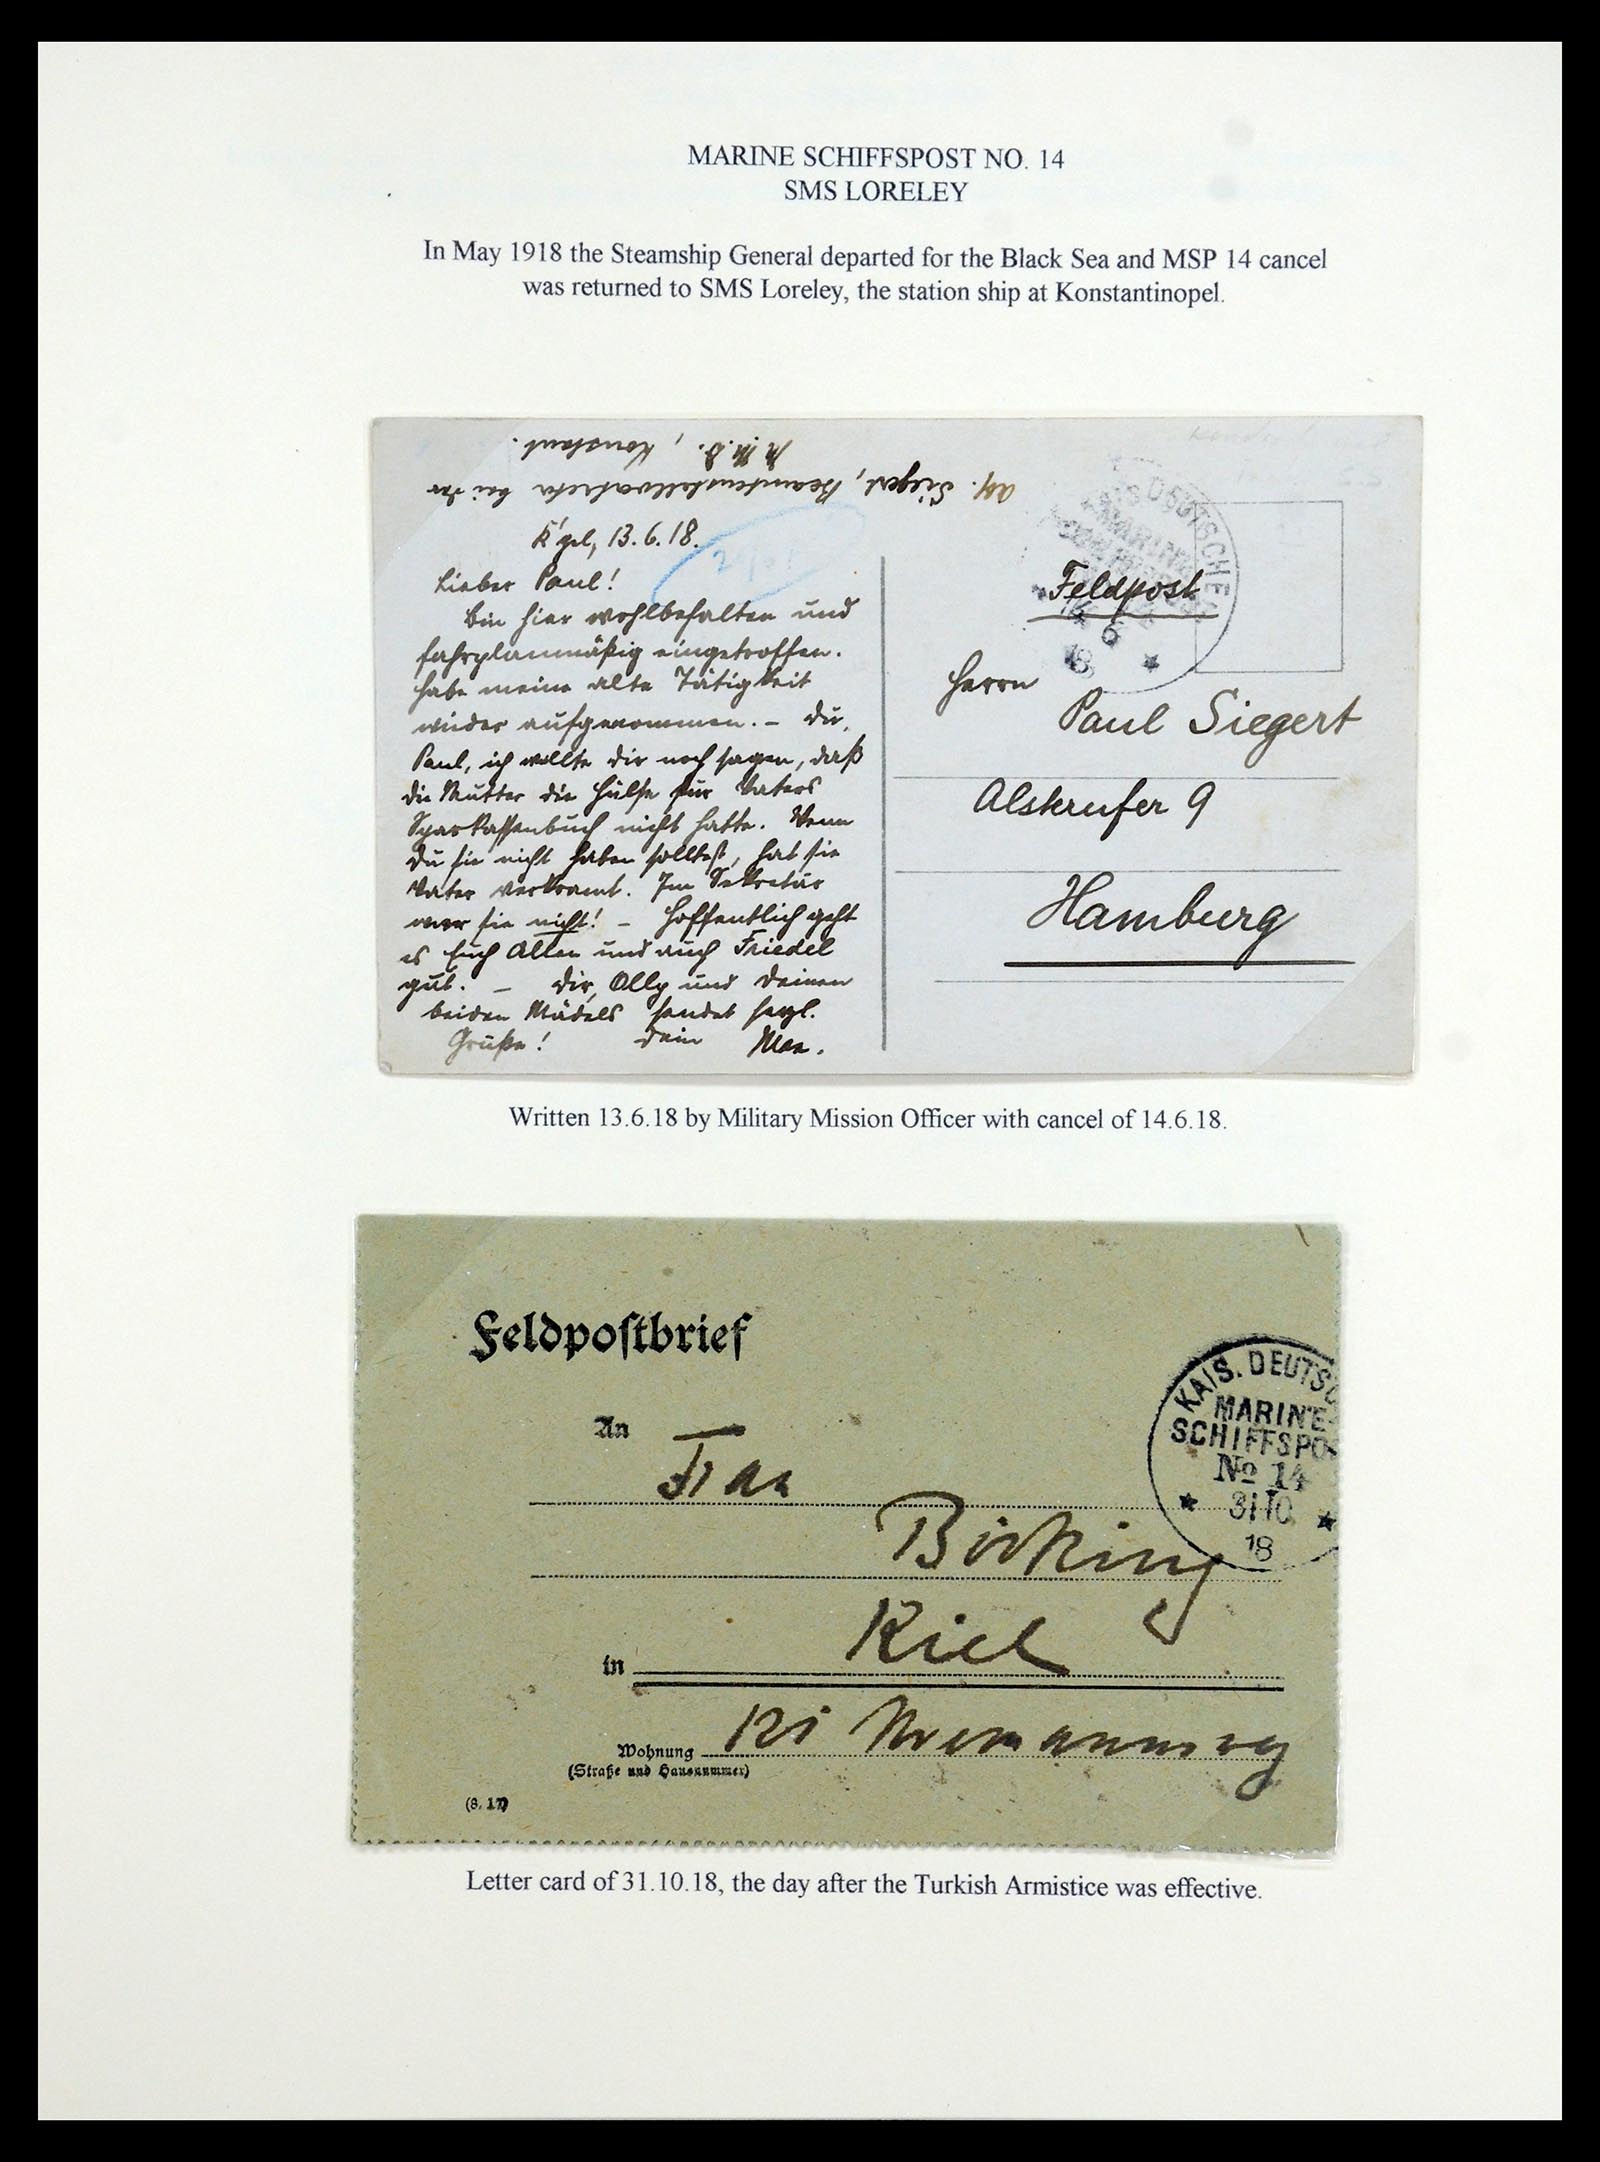 MARINE SCHIFFSPOST NO. 14
SMS LORELEY
In May 1918 the Steamship General departed for the Black Sea and MSP 14 cancel
was returned to SMS Loreley, the station ship at Konstantinopel.
M.M.D., Konstant.
Abs. Siegert, Beamtenstellvertreter bei der
K'pel, 13.6.18.
Lieber Paul!
Bin hier wohlbehalten und
fahrplanmäßig eingetroffen.
Habe meine alte Tätigkeit
wieder aufgenommen. – Du,
Paul, ich wollte dir noch sagen, daß
die Mutter die Hülse für Vaters
Sparkassenbuch nicht hatte. Wenn
Du sie nicht haben solltest, hat sie
Vater verkramt. Im Sekretär
war sie nicht! – Hoffentlich geht
es Euch Allen und auch Friedel
gut. – Dir, Olly und Deinen
beiden Mädels sendet herzl.
Grüße! Dein Max.
DEUTSCHE
MARINE
6
18
Feldpost
Herrn
Paul Siegert
Alsterufer 9
Hamburg
Written 13.6.18 by Military Mission Officer with cancel of 14.6.18.
Feldpostbrief
KAIS. DEUTSC
MARINE-
SCHIFFSPO
No 14
31 10
18
An
Frau
Birking
in Kiel
Wohnung
(Straße und Hausnummer)
(8. 17)
Letter card of 31.10.18, the day after the Turkish Armistice was effective.